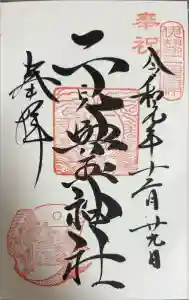 奉祝
令和元年十二月廿九日
二見興玉神社
奉拝